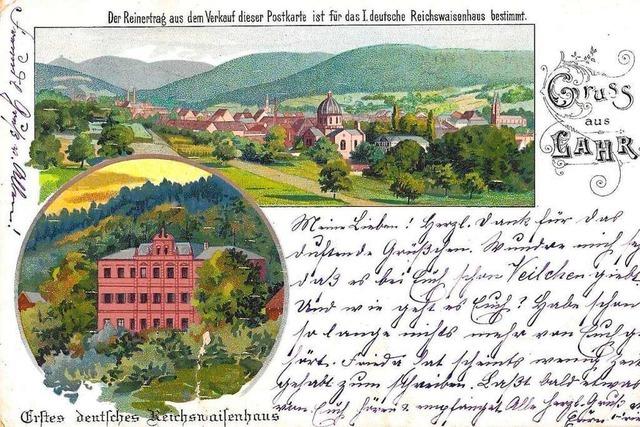 Der Reinertrag aus dem Verkauf dieser Postkarte ist für das I. deutsche Reichswaisenhaus bestimmt.
Gruss
aus
LAHR
Meine Lieben! Herzl. Dank für das
duftende Grüßchen. Wundere mich
daß es bei Euch schon Veilchen giebt
Und wie geht es Euch? Habe schon
so lange nichts mehr von Euch ge
hört. Frieda hat scheints wenig
gehabt zum schreiben. Laßt bald etwas
von Euch hören & empfanget Alle herzl. Gruß
Erstes deutsches Reichswaisenhaus